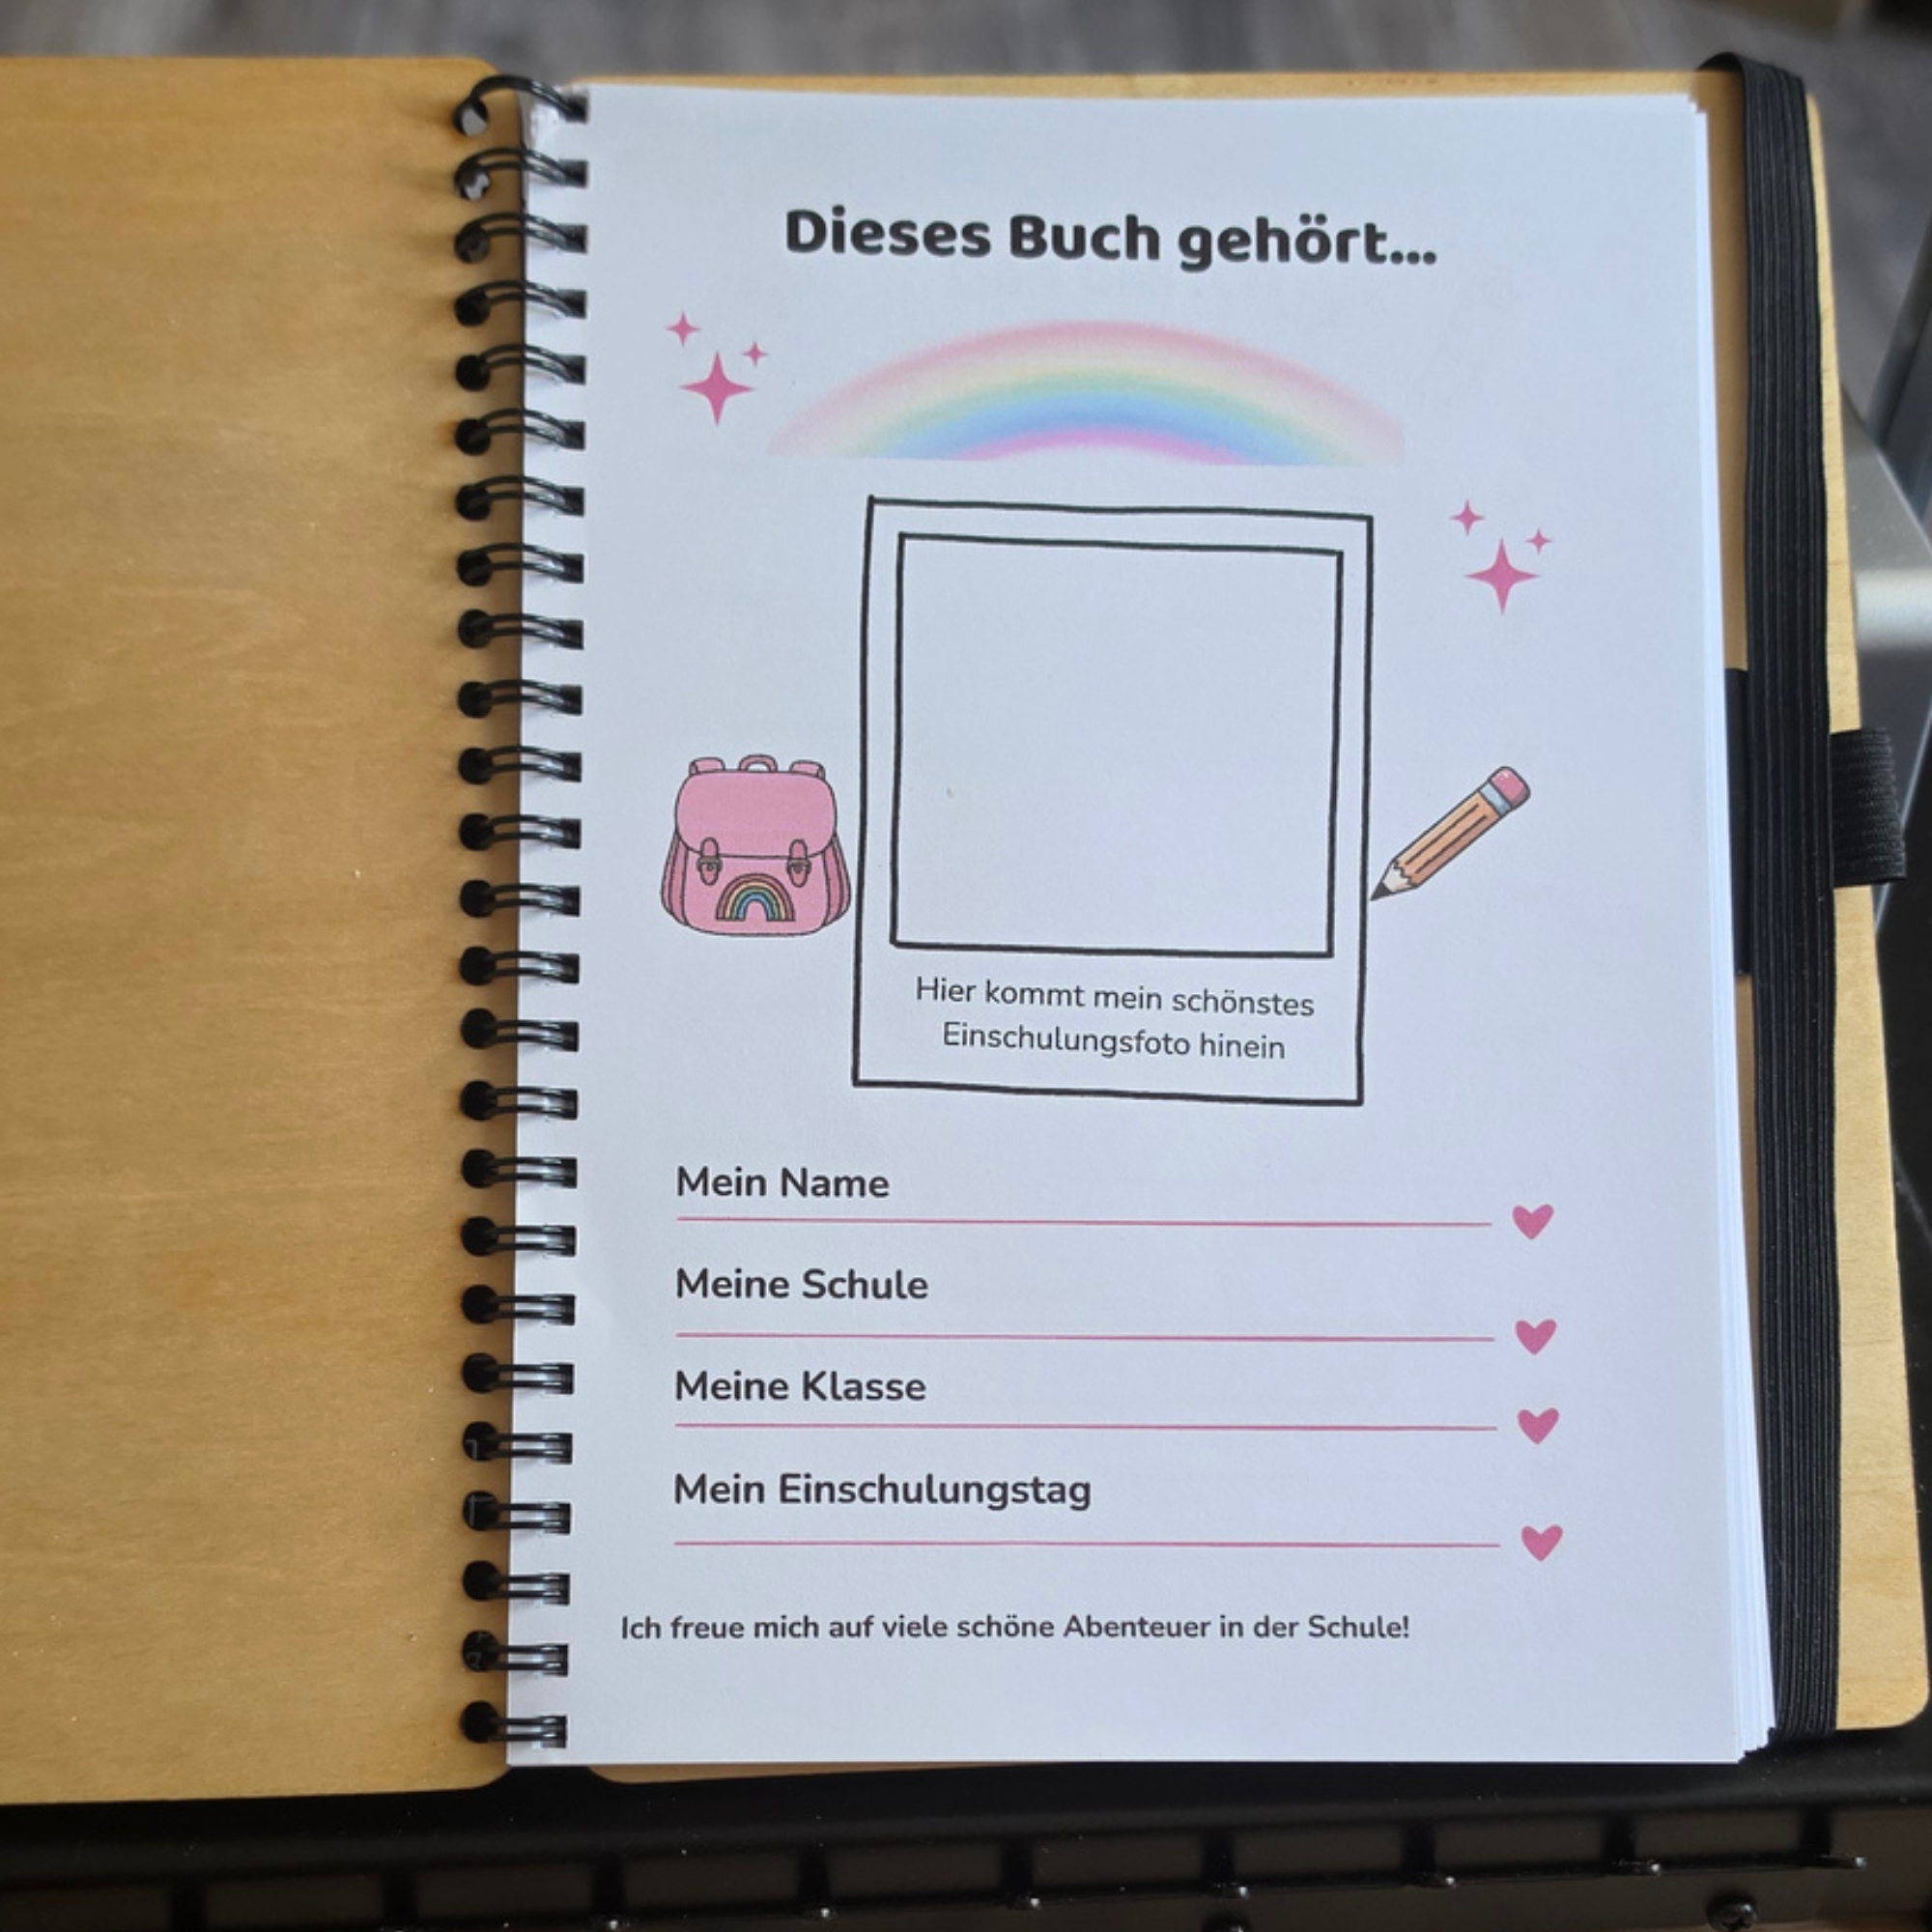 Dieses Buch gehört...
Hier kommt mein schönstes
Einschulungsfoto hinein
Mein Name
Meine Schule
Meine Klasse
Mein Einschulungstag
Ich freue mich auf viele schöne Abenteuer in der Schule!